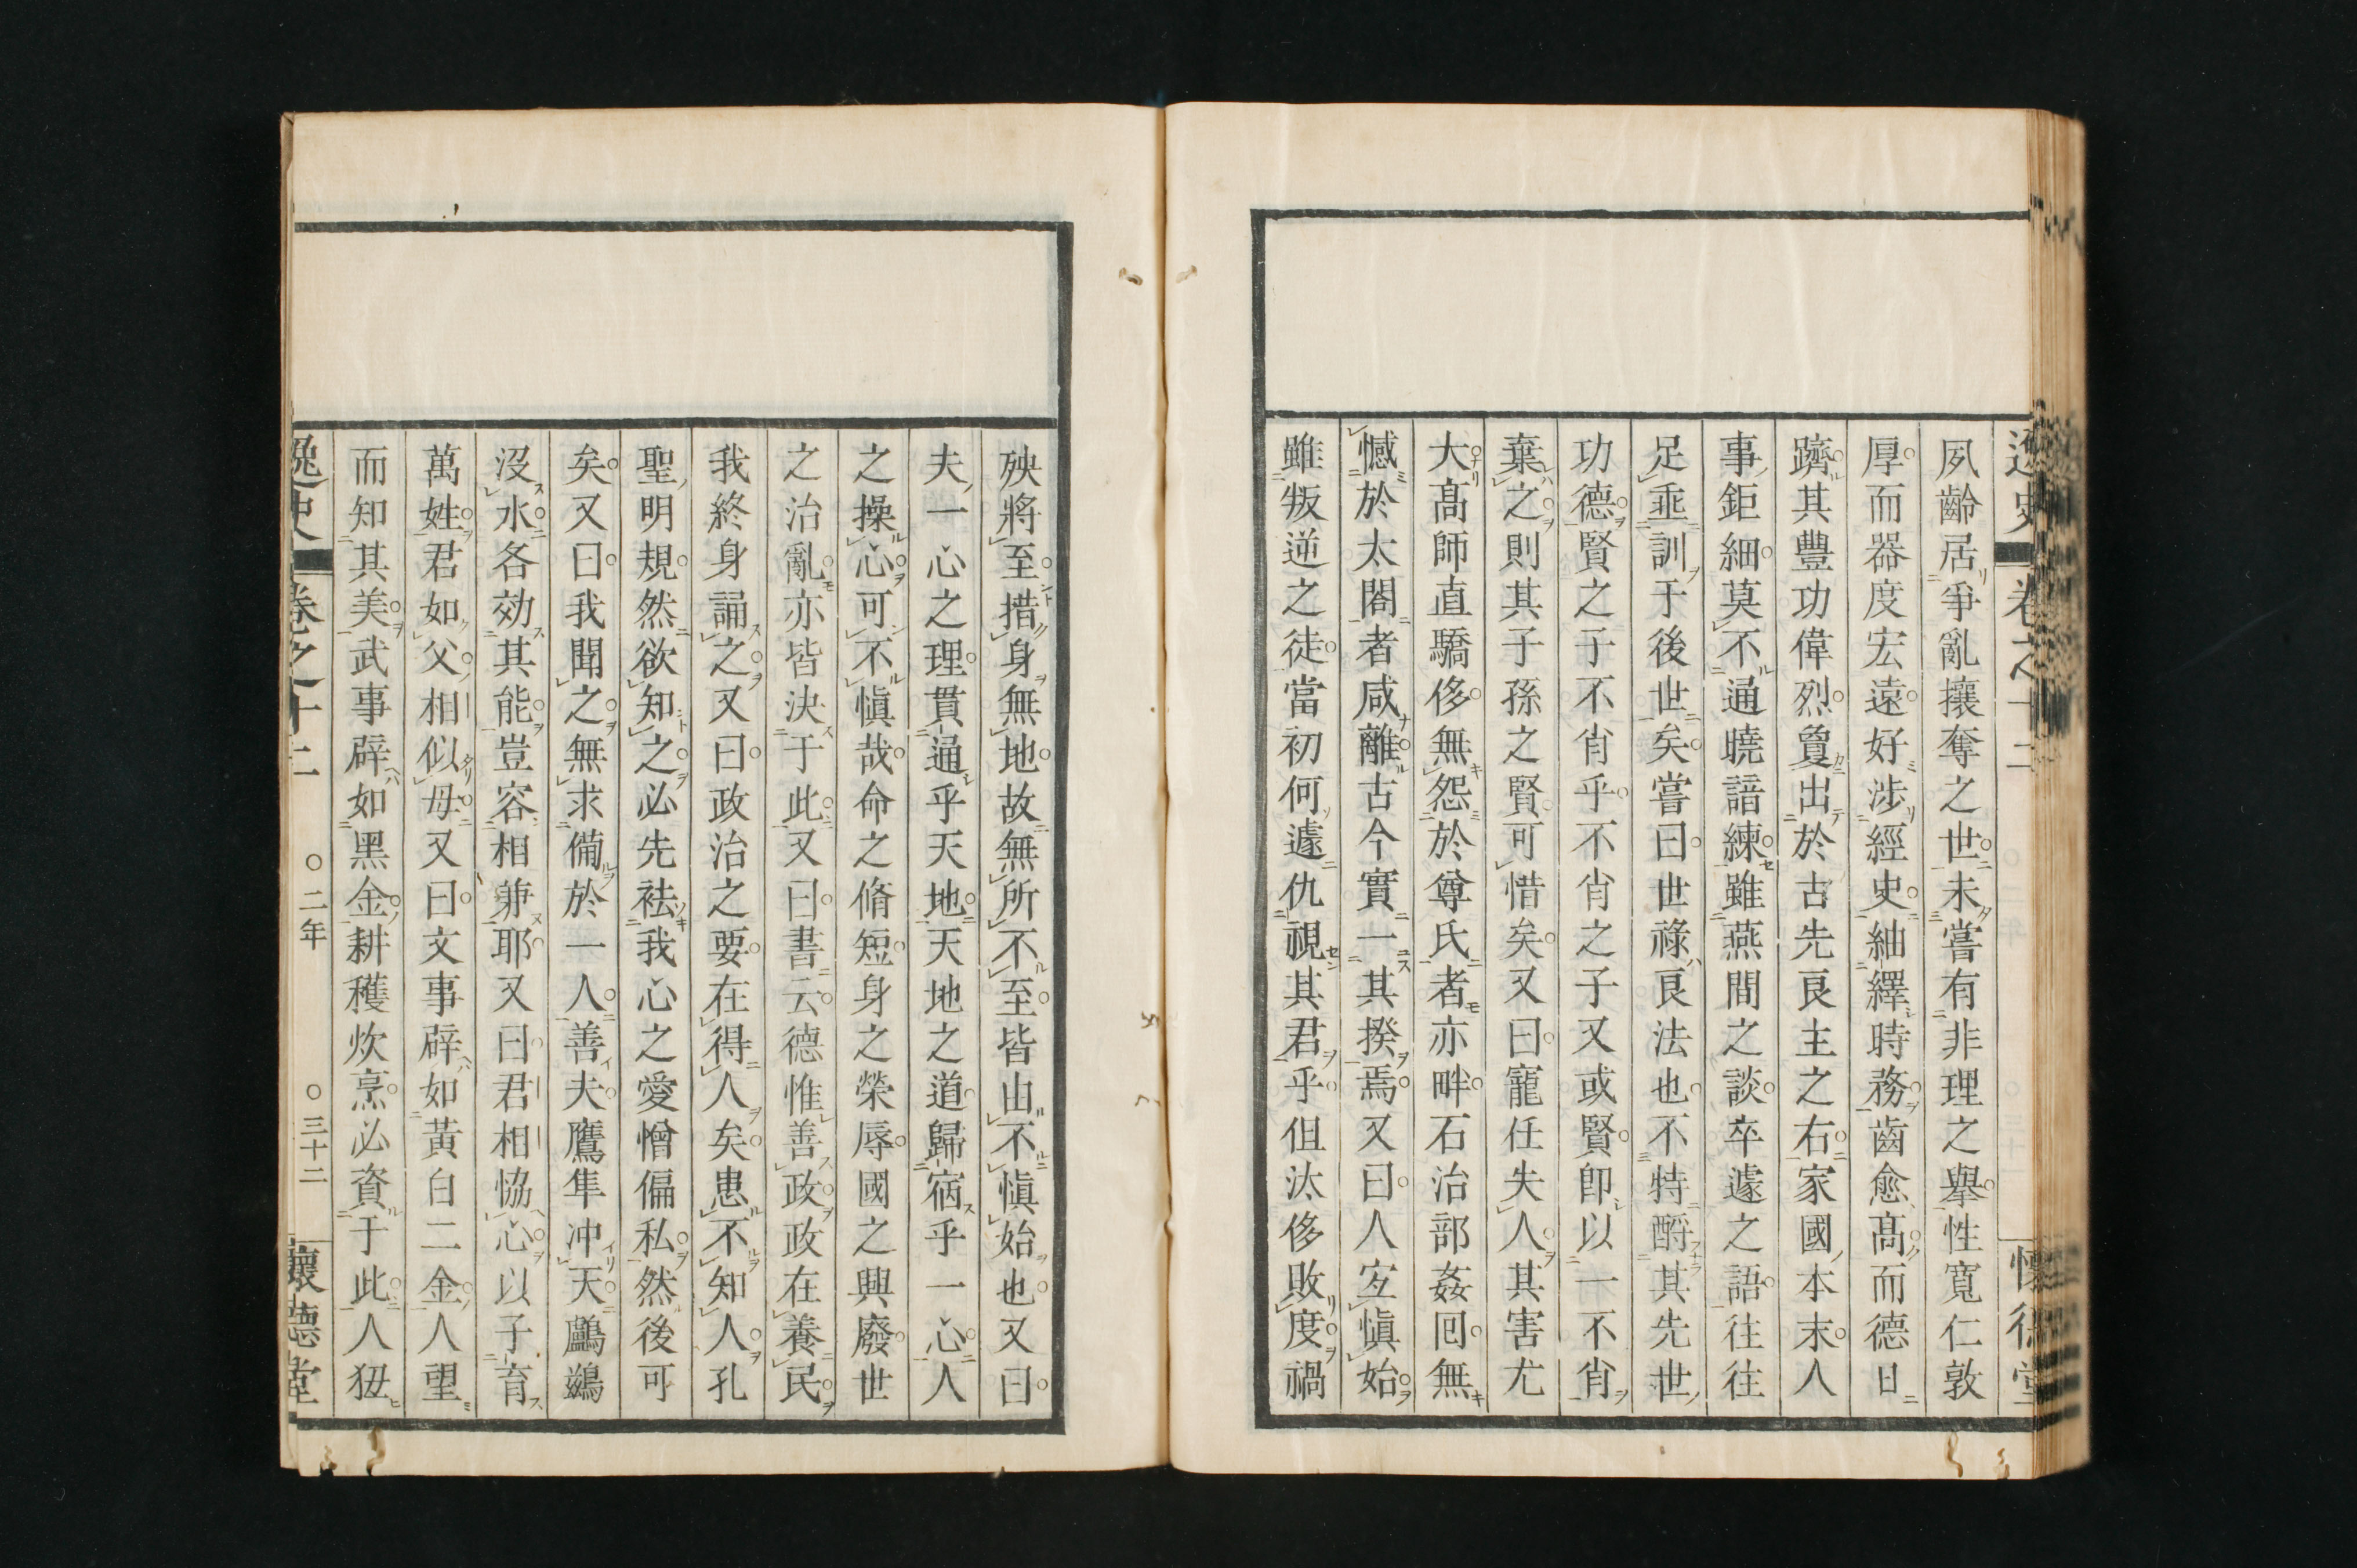 逸史 卷之十二 懷德堂
夙齡居爭亂攘奪之世未嘗有非理之擧性寬仁敦
厚而器度宏遠好涉經史紬繹時務齒愈髙而德日
躋其豐功偉烈夐出於古先良主之右家國本末人
事鉅細莫不通曉諳練雖燕間之談卒遽之語往往
足垂訓于後世矣嘗曰世祿良法也不特酹其先世
功德賢之子不肖乎不肖之子又或賢卽以一不肖
棄之則其子孫之賢可惜矣又曰寵任失人其害尤
大髙師直驕侈無怨於尊氏者亦畔石治部姦回無
憾於太閤者咸離古今實一其揆焉又曰人宜愼始
雖叛逆之徒當初何遽仇視其君乎但汰侈敗度禍
殃將至措身無地故無所不至皆由不愼始也又曰
夫一心之理貫通乎天地天地之道歸宿乎一心人
之操心可不愼哉命之脩短身之榮辱國之興廢世
之治亂亦皆決于此又曰書云德惟善政政在養民
我終身誦之又曰政治之要在得人矣患不知人孔
聖明規然欲知之必先袪我心之愛憎偏私然後可
矣又曰我聞之無求備於一人善夫鷹隼冲天鸕鷀
沒水各効其能豈容相兼耶又曰君相協心以子育
萬姓君如父相似母又曰文事辟如黃白二金人望
而知其美武事辟如黑金耕穫炊烹必資于此人狃
逸史 卷之十二 ○二年 ○三十二 懷德堂